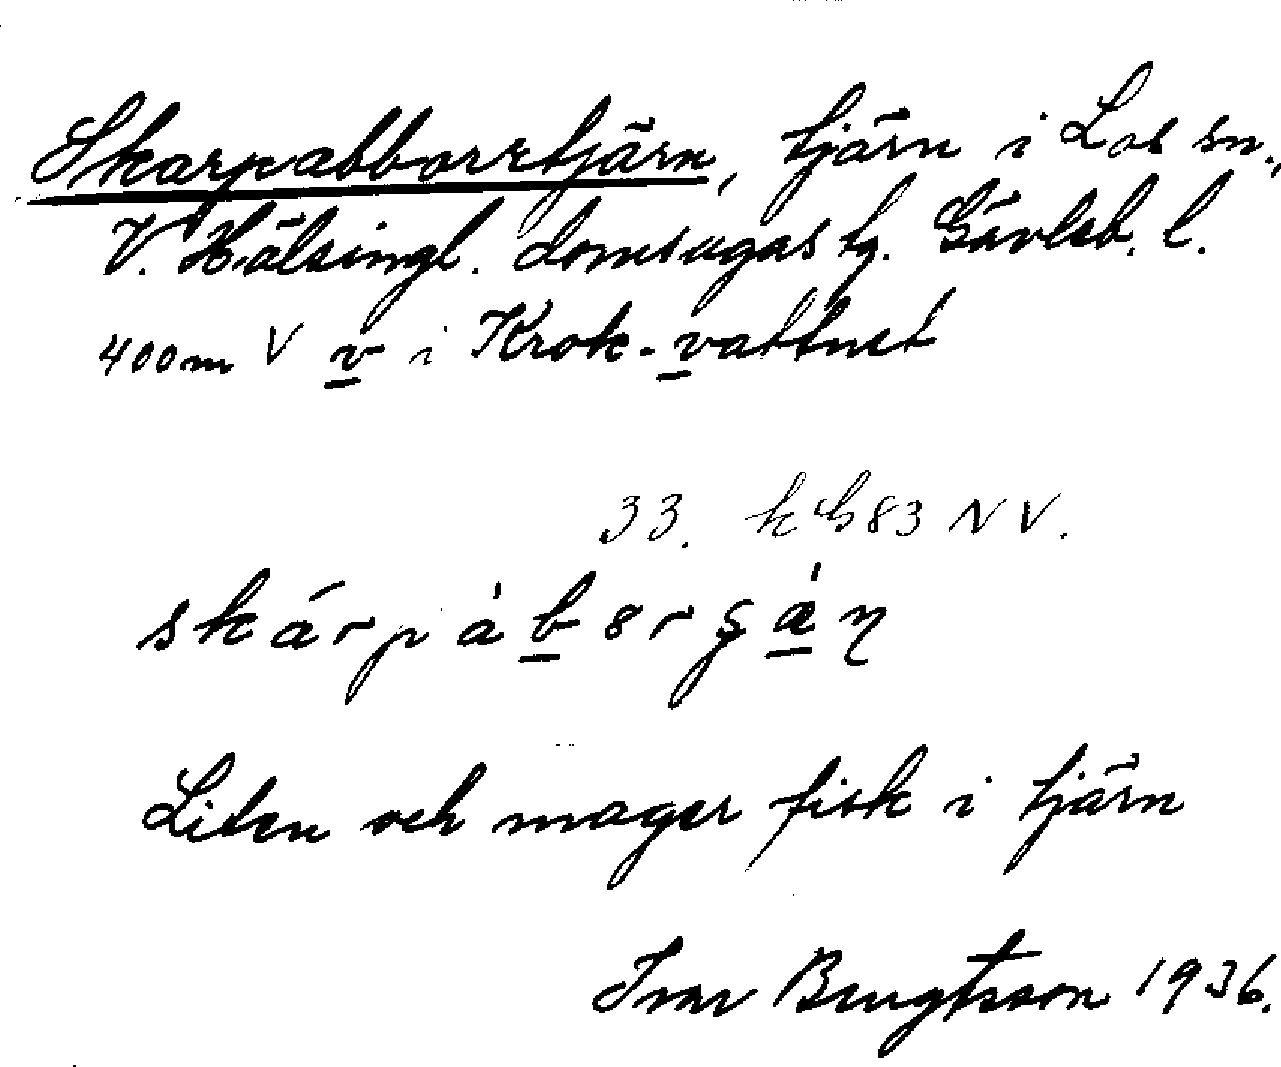 Skarpabborrtjärn, tjärn i Los sn.,
V. Hälsingl. domsagas tg. Gävleb. l.
400 m V v i Krok-vattnet
33. NV.
Liten och mager fisk i tjärn
Ivar Bengtsson 1936.